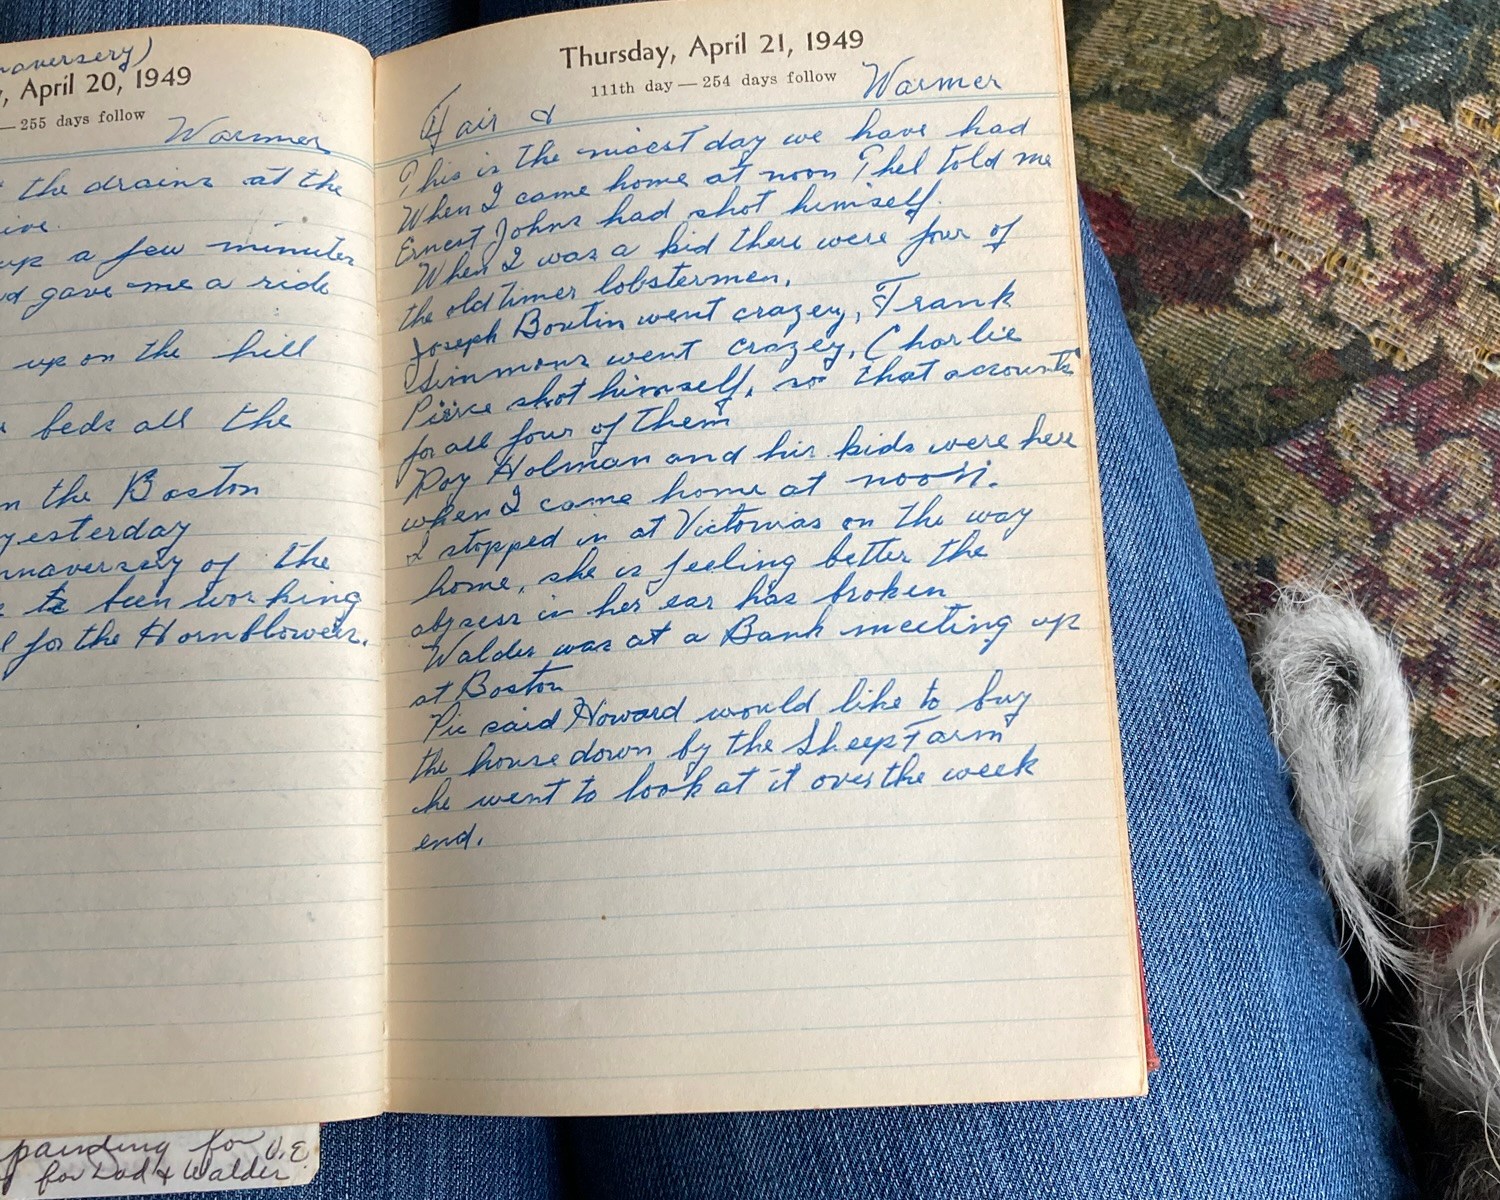 naversery)
, April 20, 1949
— 255 days follow
Warmer
the drains at the
ive.
up a few minutes
d gave me a ride
up on the hill
beds all the
n the Boston
yesterday
nnaversery of the
to been working
l for the Hornblowers.
Thursday, April 21, 1949
111th day — 254 days follow
Fair & Warmer
This is the nicest day we have had
When I came home at noon Phel told me
Ernest Johns had shot himself.
When I was a kid there were four of
the old timer lobstermen.
Joseph Boutin went crazey, Frank
Simmons went crazey, Charlie
Pierce shot himself, so that accounts
for all four of them
Roy Holman and his kids were here
when I came home at noon.
I stopped in at Victorias on the way
home, she is feeling better the
abzsess in her ear has broken
Walder was at a Bank meeting up
at Boston
Pic said Howard would like to buy
the house down by the Sheep Farm
he went to look at it over the week
end.
painting for V.E.
for Dad & Walder